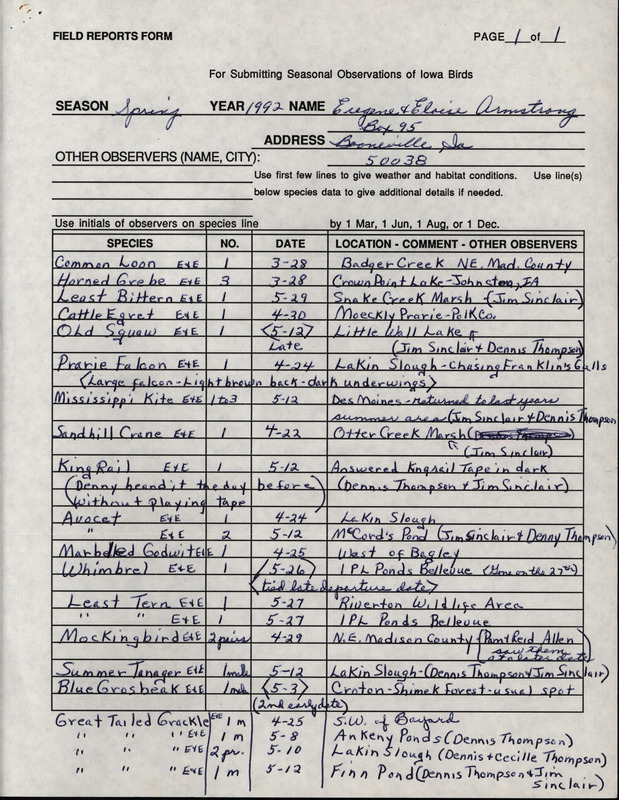 FIELD REPORTS FORM PAGE 1 of 1
For Submitting Seasonal Observations of Iowa Birds
SEASON Spring YEAR 1992 NAME Eugene & Eloise Armstrong
Box 95
ADDRESS Booneville, Ia
OTHER OBSERVERS (NAME, CITY): 50038
Use first few lines to give weather and habitat conditions. Use line(s)
below species data to give additional details if needed.
Use initials of observers on species line by 1 Mar, 1 Jun, 1 Aug, or 1 Dec.
SPECIES NO. DATE LOCATION - COMMENT - OTHER OBSERVERS
Common Loon E&E 1 3-28 Badger Creek NE. Mad. County
Horned Grebe E&E 3 3-28 Crown Point Lake-Johnston, IA
Least Bittern E&E 1 5-29 Snake Creek Marsh (Jim Sinclair)
Cattle Egret E&E 1 4-30 Moeckly Prarie-Polk Co.
Old Squaw E&E 1 <5-12> Little Wall Lake
Late (Jim Sinclair & Dennis Thompson)
Prarie Falcon E&E 1 4-24 Lakin Slough-Chasing Franklin's Gulls
<Large falcon-Light brown back-dark underwings>
Mississippi Kite E&E 1 to 3 5-12 Des Moines-returned to last years
summer area (Jim Sinclair & Dennis Thompson
Sandhill Crane E&E 1 4-22 Otter Creek Marsh
(Jim Sinclair)
King Rail E&E 1 5-12 Answered Kngrail Tape in dark
(Denny heard it the day before) (Dennis Thompson & Jim Sinclair)
without playing tape
Avocet E&E 1 4-24 Lakin Slough
" E&E 2 5-12 McCord's Pond (Jim Sinclair & Denny Thompson)
Marbled Godwit E&E 1 4-25 West of Bagley
Whimbrel E&E 1 <5-26> IPL Ponds Bellevue (Gone on the 27th)
<tied late departure date>
Least Tern E&E 1 5-27 Riverton Wildlife Area
" " E&E 1 5-27 IPL Ponds Bellevue
Mockingbird E&E 2 pairs 4-29 N.E. Madison County (Pam & Reid Allen
saw them
at a later date)
Summer Tanager E&E 1 male 5-12 Lakin Slough-(Dennis Thompson & Jim Sinclair)
Blue Grosbeak E&E 1 male <5-3> Croton-Shimek Forest-usual spot
(2nd early date)
Great Tailed Grackle E&E 1 m 4-25 S.W. of Bayard
" " " E&E 1 m 5-8 Ankeny Ponds (Dennis Thompson)
" " " E&E 2 pr. 5-10 Lakin Slough (Dennis & Cecille Thompson)
" " " E&E 1 m 5-12 Finn Pond (Dennis Thompson & Jim
Sinclair)